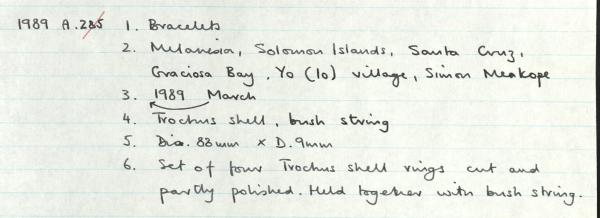 1989 A.285 1. Bracelets
2. Melanesia, Solomon Islands, Santa Cruz,
Graciosa Bay, Yo (lo) village, Simon Meakope
3. 1989 March
4. Trochus shell, bush string
5. Dia. 88mm x D. 9mm
6. Set of four Trochus shell rings cut and
partly polished. Held together with bush string.